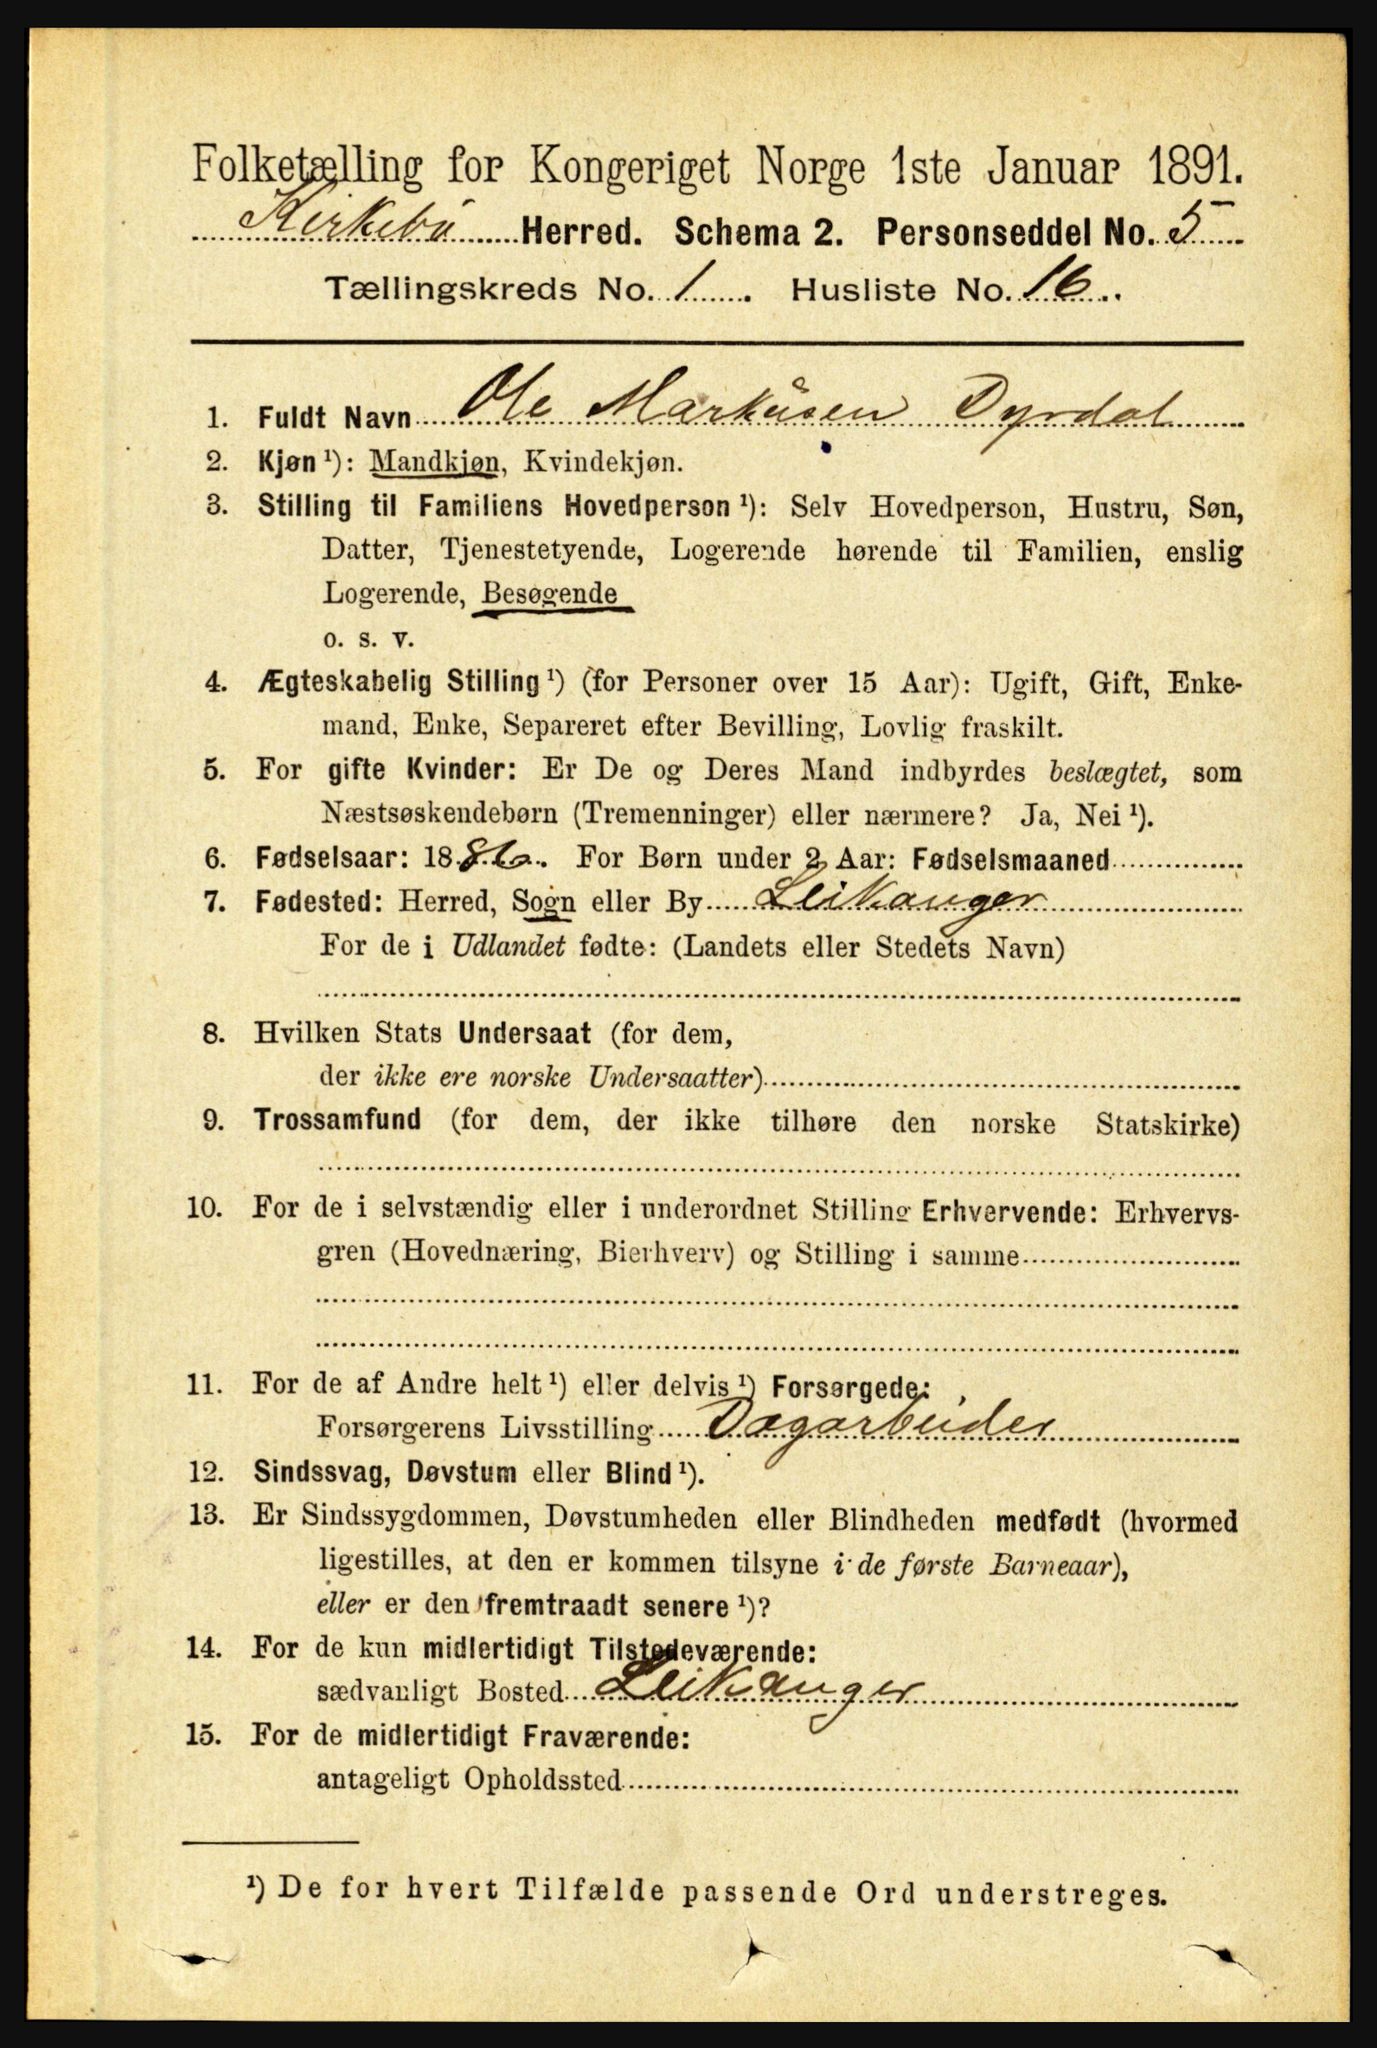 Folketælling for Kongeriget Norge 1ste Januar 1891.
Kirkebø Herred. Schema 2. Personseddel No. 5
Tællingskreds No. 1. Husliste No. 16.
1. Fuldt Navn Ole Markusen Dyrdal
2. Kjøn ¹): Mandkjøn, Kvindekjøn.
3. Stilling til Familiens Hovedperson ¹): Selv Hovedperson, Hustru, Søn,
Datter, Tjenestetyende, Logerende hørende til Familien, enslig
Logerende, Besøgende
o. s. v.
4. Ægteskabelig Stilling ¹) (for Personer over 15 Aar): Ugift, Gift, Enke-
mand, Enke, Separeret efter Bevilling, Lovlig fraskilt.
5. For gifte Kvinder: Er De og Deres Mand indbyrdes beslægtet, som
Næstsøskendebørn (Tremenninger) eller nærmere? Ja, Nei ¹).
6. Fødselsaar: 1886. For Børn under 2 Aar: Fødselsmaaned
7. Fødested: Herred, Sogn eller By Leikanger
For de i Udlandet fødte: (Landets eller Stedets Navn)
8. Hvilken Stats Undersaat (for dem,
der ikke ere norske Undersaatter)
9. Trossamfund (for dem, der ikke tilhøre den norske Statskirke)
10. For de i selvstændig eller i underordnet Stilling Erhvervende: Erhvervs-
gren (Hovednæring, Bierhverv) og Stilling i samme
11. For de af Andre helt ¹) eller delvis ¹) Forsørgede:
Forsørgerens Livsstilling Dagarbeider
12. Sindssvag, Døvstum eller Blind ¹).
13. Er Sindssygdommen, Døvstumheden eller Blindheden medfødt (hvormed
ligestilles, at den er kommen tilsyne i de første Barneaar),
eller er den fremtraadt senere ¹)?
14. For de kun midlertidigt Tilstedeværende:
sædvanligt Bosted Leikanger
15. For de midlertidigt Fraværende:
antageligt Opholdssted
¹) De for hvert Tilfælde passende Ord understreges.